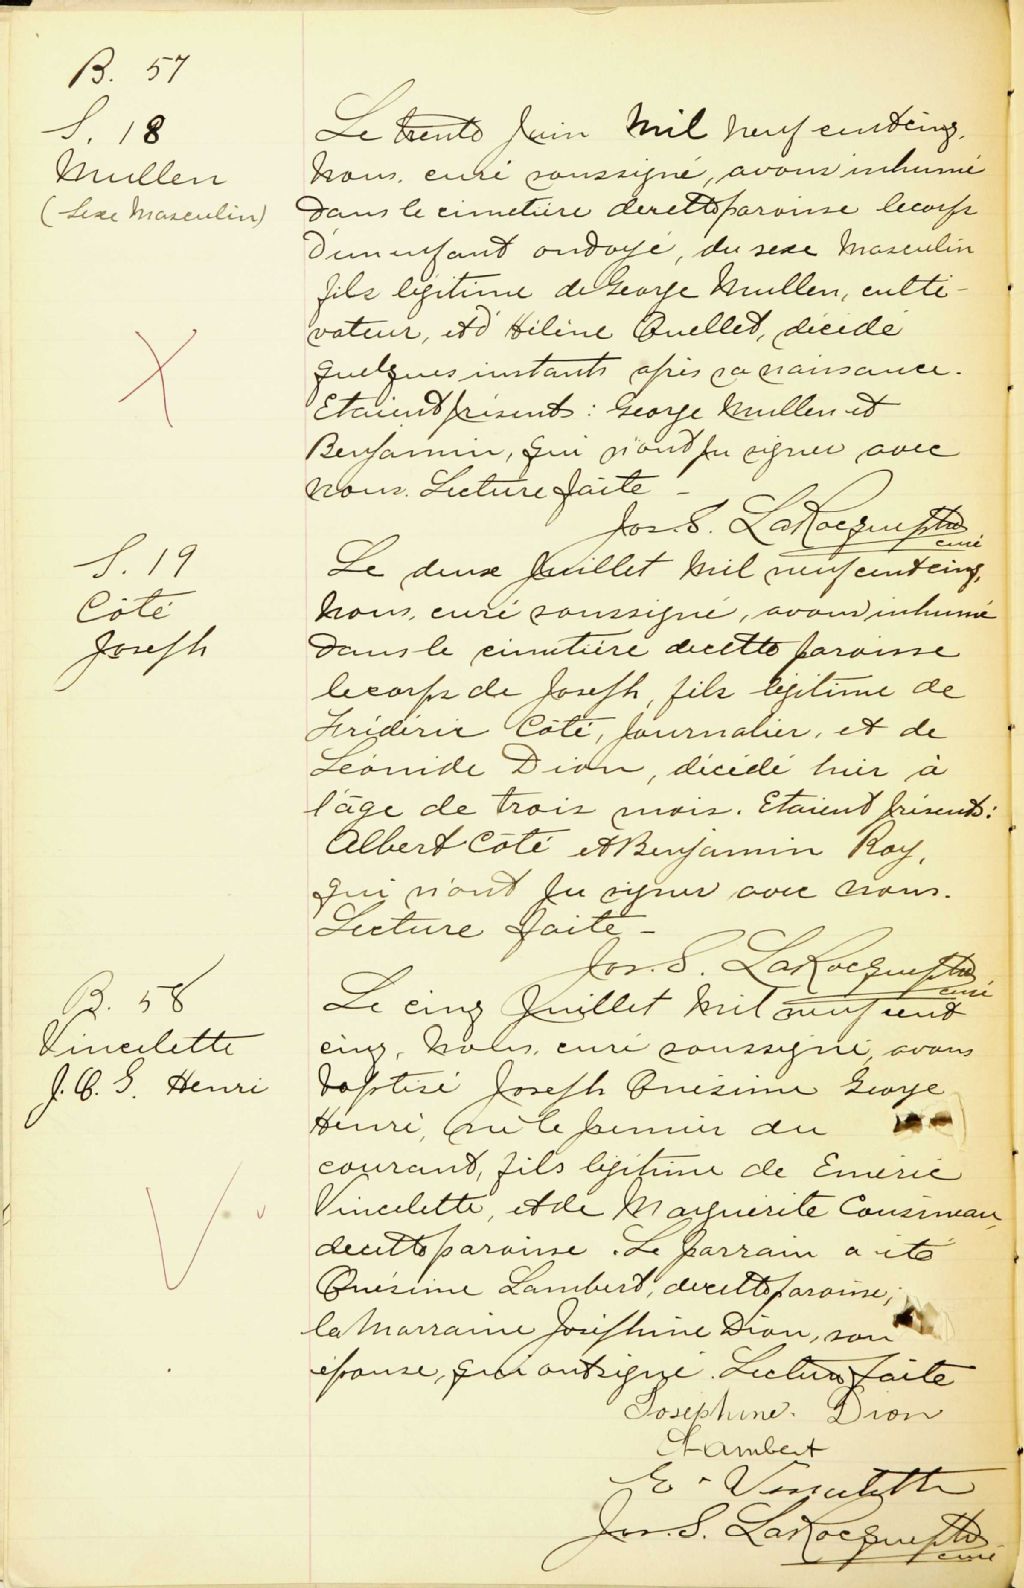 B. 57
S. 18
Mullen
(Sexe Masculin)
Le trente Juin Mil neuf cent cinq,
Nous, curé soussigné, avons inhumé
dans le cimetière de cette paroisse le corps
d'un enfant ondoyé, du sexe Masculin
fils légitime de George Mullen, culti-
vateur, et d'Hélène Ouellet, décédé
quelques instants après sa naissance.
Etaient présents: George Mullen et
Benjamin, qui n'ont pu signer avec
nous. Lecture faite -
Jos. S. LaRocque Ptre
curé
S. 19
Côté
Joseph
Le deux Juillet Mil neuf cent cinq,
Nous, curé soussigné, avons inhumé
dans le cimetière de cette paroisse
le corps de Joseph, fils légitime de
Frédéric Côté, journalier, et de
Léonide Dion, décédé hier à
l'âge de trois mois. Etaient présents:
Albert Côté et Benjamin Roy,
qui n'ont pu signer avec nous.
Lecture faite -
Jos. S. LaRocque Ptre
curé
B. 58
Vincelette
J. O. G. Henri
Le cinq Juillet Mil neuf cent
cinq, Nous, curé soussigné, avons
baptisé Joseph Onésime George
Henri, né le premier du
courant, fils légitime de Eméric
Vincelette, et de Marguerite Cousineau,
de cette paroisse. Le Parrain a été
Onésime Lambert, de cette paroisse;
la Marraine Joséphine Dion, son
épouse, qui ont signé. Lecture faite
Josephine. Dion
O Lambert
E. Vincelette
Jos. S. LaRocque Ptre
curé